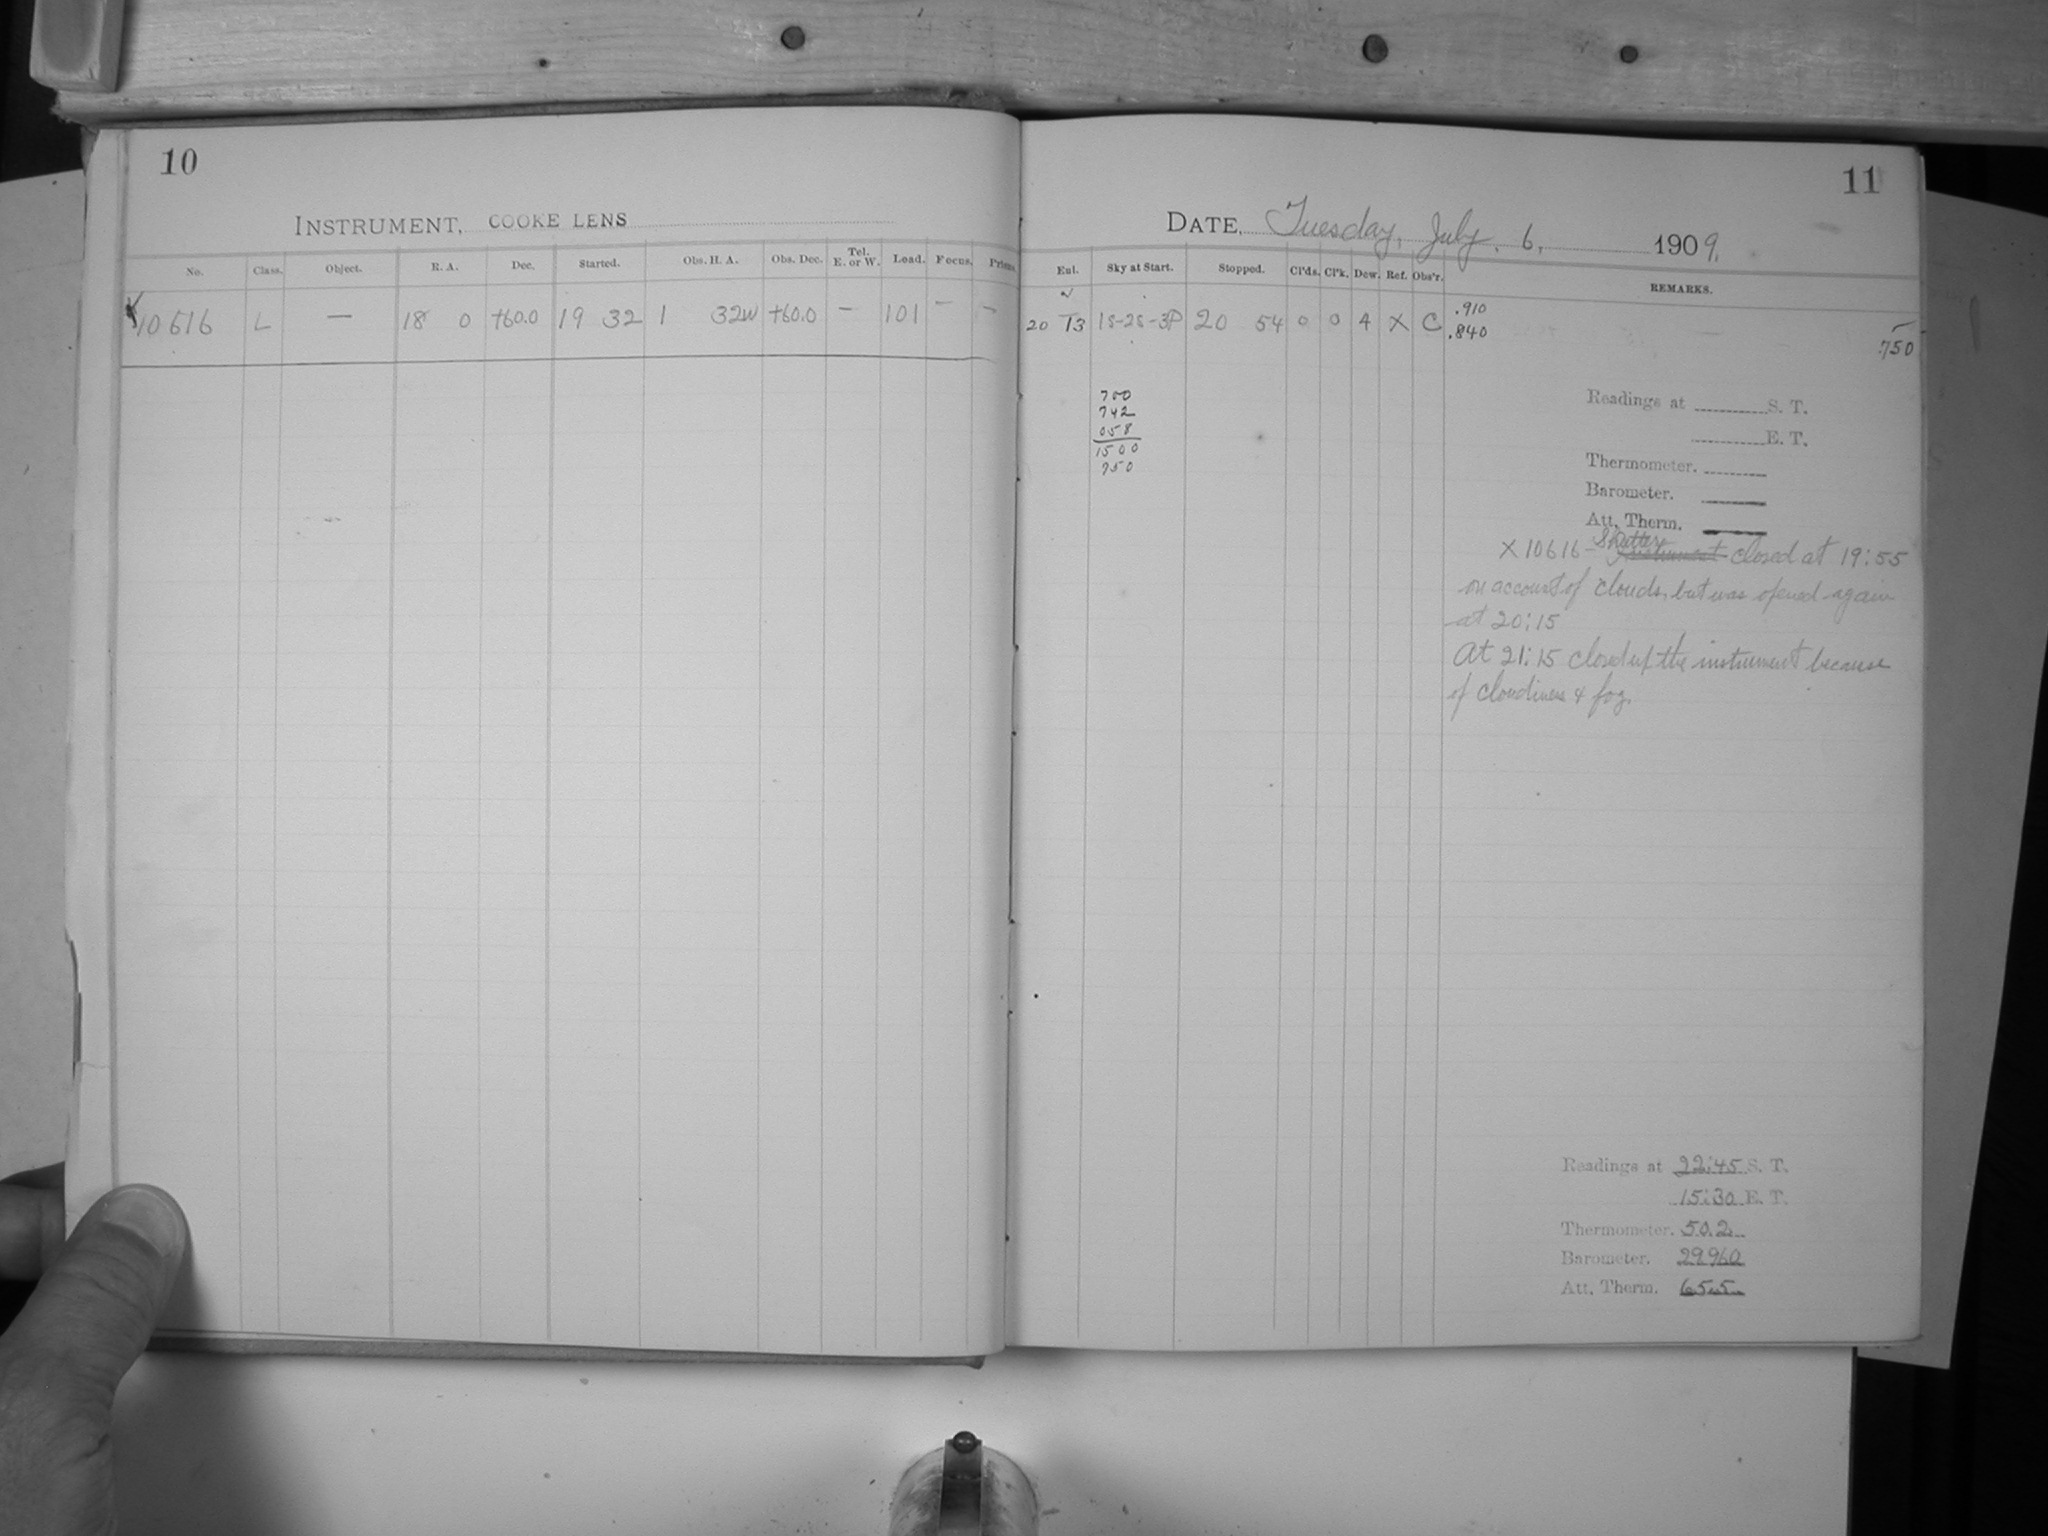 10
INSTRUMENT, COOKE LENS
No. Class. Object. R. A. Dec. Started. Obs. H. A. Obs. Dec. Tel. E. or W. Load. Focus. Prism.
10616 L — 18 0 +60.0 19 32 1 32W +60.0 — 101 — —
11
DATE, Tuesday, July, 6, 1909.
Exl. Sky at Start. Stopped. Cl'ds. Cl'k. Dew. Ref. Obs'r. REMARKS.
20 T3 1S-2S-3P 20 54 0 0 4 X C .910
.840
.750
700
742
058
1500
750
Readings at S. T.
E. T.
Thermometer.
Barometer.
Att. Therm.
X 10616 - Shutter Instrument closed at 19:55
on account of clouds, but was opened again
at 20:15
At 21:15 closed up the instrument because
of cloudiness & fog.
Readings at 22:45 S. T.
15:30 E. T.
Thermometer. 50.2
Barometer. 29.960
Att. Therm. 65.5